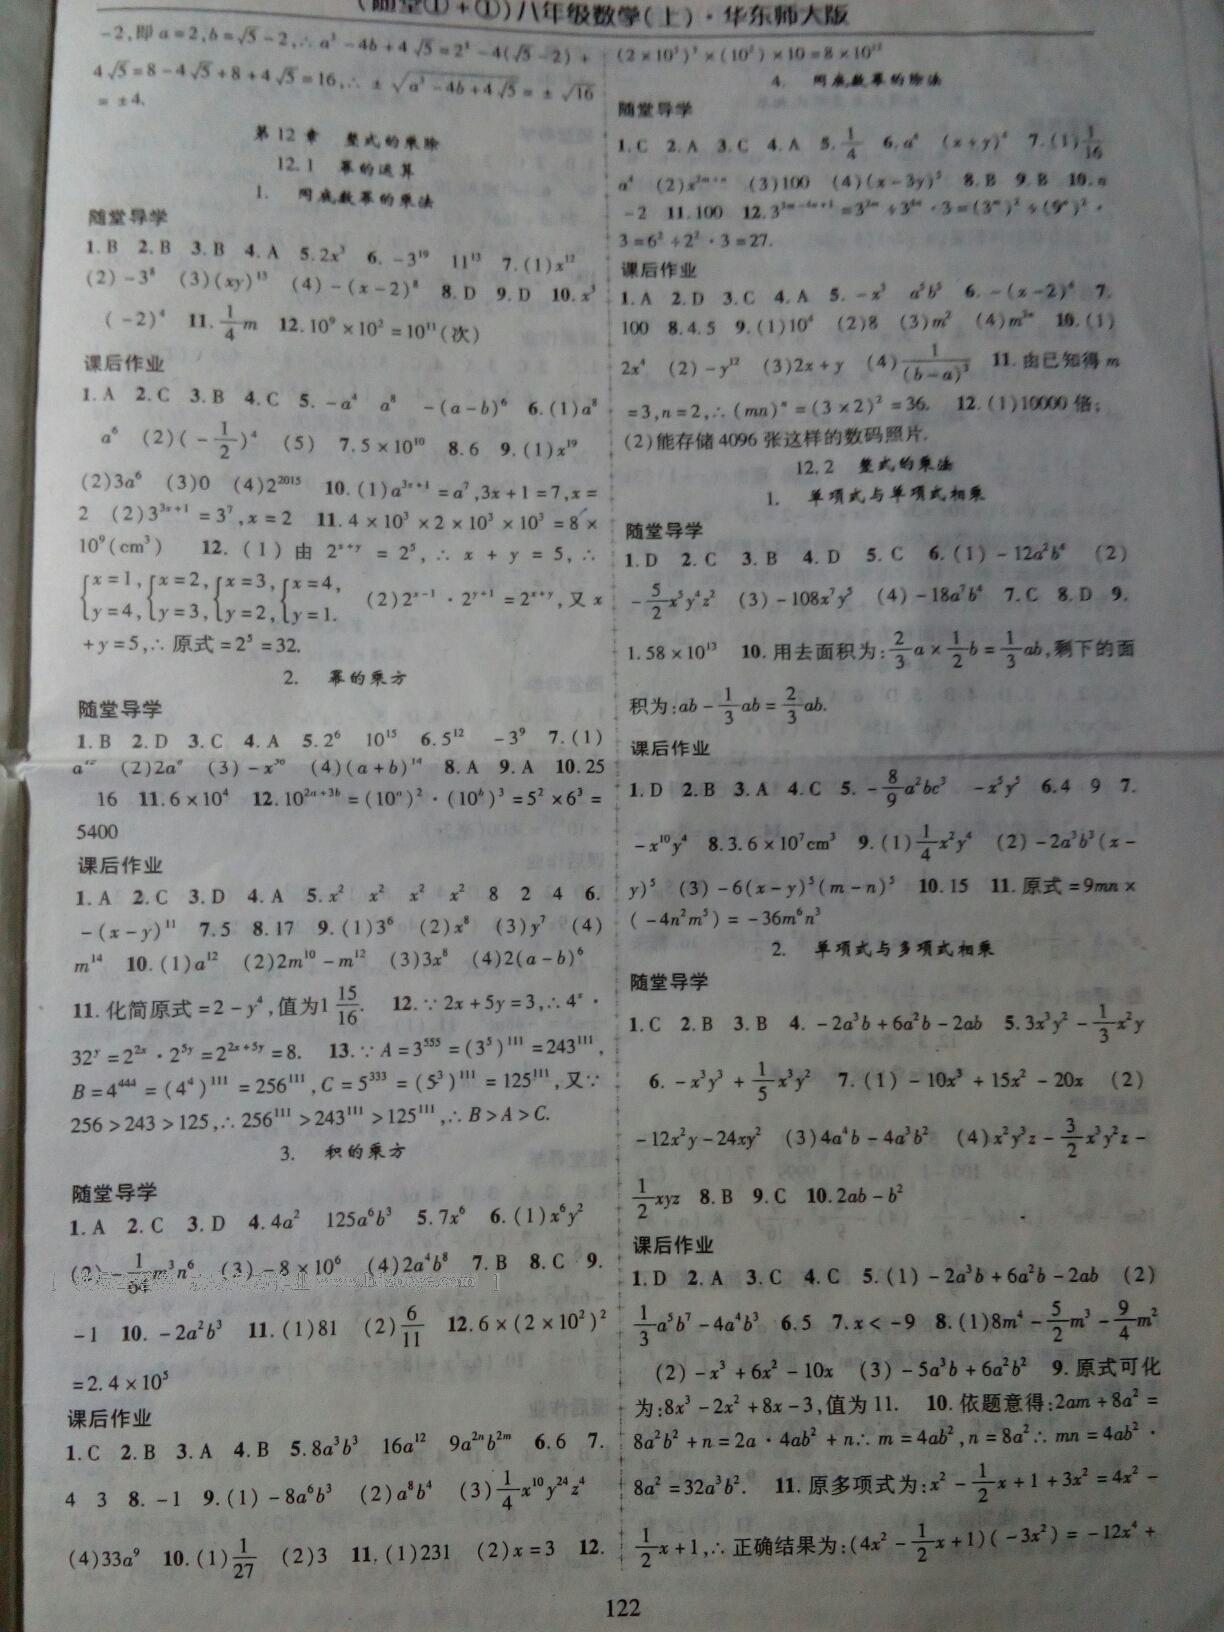 (随堂①+①)八年级数学(上)·华东师大版
-2,即a=2,b=√5-2,∴a³-4b+4√5=2³-4(√5-2)+
4√5=8-4√5+8+4√5=16,∴±√(a³-4b+4√5)=±√16
=±4.
第12章 整式的乘除
12.1 幂的运算
1. 同底数幂的乘法
随堂导学
1.B 2.B 3.B 4.A 5.2x³ 6.-3¹⁹ 11¹³ 7.(1)x¹²
(2)-3⁸ (3)(xy)¹³ (4)-(x-2)⁸ 8.D 9.D 10.x³
(-2)⁴ 11.1/4m 12.10⁹×10²=10¹¹(次)
课后作业
1.A 2.C 3.B 4.C 5.-a⁴ a⁸ -(a-b)⁶ 6.(1)a⁸
a⁶ (2)(-1/2)⁴ (5) 7.5×10¹⁰ 8.6 9.(1)x¹⁹
(2)3a⁶ (3)0 (4)2²⁰¹⁵ 10.(1)a³ˣ⁺¹=a⁷,3x+1=7,x=
2 (2)3³ˣ⁺¹=3⁷,x=2 11.4×10³×2×10³×10³=8×
10⁹(cm³) 12.(1)由2ˣ⁺ʸ=2⁵,∴x+y=5,∴
{x=1,y=4,{x=2,y=3,{x=3,y=2,{x=4,y=1. (2)2ˣ⁻¹·2ʸ⁺¹=2ˣ⁺ʸ,又x
+y=5,∴原式=2⁵=32.
2. 幂的乘方
随堂导学
1.B 2.D 3.C 4.A 5.2⁶ 10¹⁵ 6.5¹² -3⁹ 7.(1)
(2)2a⁹ (3)-x³⁰ (4)(a+b)¹⁴ 8.A 9.A 10.25
16 11.6×10⁴ 12.10²ᵃ⁺³ᵇ=(10ᵃ)²·(10ᵇ)³=5²×6³=
5400
课后作业
1.A 2.C 3.D 4.A 5.x² x² x² x² 8 2 4 6.
-(x-y)¹¹ 7.5 8.17 9.(1)3⁶ (2)x⁸ (3)y⁷ (4)
m¹⁴ 10.(1)a¹² (2)2m¹⁰-m¹² (3)3x⁸ (4)2(a-b)⁶
11.化简原式=2-y⁴,值为1 15/16. 12.∵2x+5y=3,∴4ˣ·
32ʸ=2²ˣ·2⁵ʸ=2²ˣ⁺⁵ʸ=8. 13.∵A=3⁵⁵⁵=(3⁵)¹¹¹=243¹¹¹,
B=4⁴⁴⁴=(4⁴)¹¹¹=256¹¹¹,C=5³³³=(5³)¹¹¹=125¹¹¹,又∵
256>243>125,∴256¹¹¹>243¹¹¹>125¹¹¹,∴B>A>C.
3. 积的乘方
随堂导学
1.A 2.C 3.D 4.4a² 125a⁶b³ 5.7x⁶ 6.(1)x⁶y²
(2)-1/64m³n⁶ (3)-8×10⁶ (4)2a⁴b⁸ 7.B 8.C 9.
-1 10.-2a²b³ 11.(1)81 (2)6/11 12.6×(2×10²)²
=2.4×10⁵
课后作业
1.C 2.B 3.A 4.B 5.8a³b³ 16a¹² 9a²ⁿb²ᵐ 6.6 7.
4 3 8.-1 9.(1)-8a⁶b³ (2)a⁸b⁴ (3)1/4x¹⁰y²⁴z⁴
(4)33a⁹ 10.(1)1/27 (2)3 11.(1)231 (2)x=3 12.
(2×10³)³×(10²)×10=8×10¹²
4. 同底数幂的除法
随堂导学
1.C 2.A 3.C 4.A 5.1/4 6.a⁴ (x+y)⁴ 7.(1)1/16
a⁴ (2)x²ᵐ⁺ⁿ (3)100 (4)(x-3y)⁵ 8.B 9.B 10.n
-2 11.100 12.3²ᵐ⁻⁴ⁿ⁺¹=3²ᵐ÷3⁴ⁿ·3=(3ᵐ)²÷(9ⁿ)²·
3=6²÷2²·3=27.
课后作业
1.A 2.D 3.C 4.A 5.-x³ a⁵b⁵ 6.-(x-2)⁴ 7.
100 8.4.5 9.(1)10⁴ (2)8 (3)m² (4)m³ⁿ 10.(1)
2x⁴ (2)-y¹² (3)2x+y (4)1/(b-a)³ 11.由已知得m
=3,n=2,∴(mn)ⁿ=(3×2)²=36. 12.(1)10000倍;
(2)能存储4096张这样的数码照片.
12.2 整式的乘法
1. 单项式与单项式相乘
随堂导学
1.D 2.C 3.B 4.D 5.C 6.(1)-12a²b⁴ (2)
-5/2x⁵y⁴z² (3)-108x⁷y⁵ (4)-18a⁷b⁴ 7.C 8.D 9.
1.58×10¹³ 10.用去面积为:2/3a×1/2b=1/3ab,剩下的面
积为:ab-1/3ab=2/3ab.
课后作业
1.D 2.B 3.A 4.C 5.-8/9a²bc³ -x⁵y⁵ 6.4 9 7.
-x¹⁰y⁴ 8.3.6×10⁷cm³ 9.(1)1/4x²y⁴ (2)-2a³b³(x-
y)⁵ (3)-6(x-y)⁵(m-n)⁵ 10.15 11.原式=9mn×
(-4n²m⁵)=-36m⁶n³
2. 单项式与多项式相乘
随堂导学
1.C 2.B 3.B 4.-2a³b+6a²b-2ab 5.3x³y²-1/3x²y
6.-x³y³+1/5x³y² 7.(1)-10x³+15x²-20x (2)
-12x²y-24xy² (3)4a⁴b-4a³b² (4)x²y³z-3/2x³y²z-
1/2xyz 8.B 9.C 10.2ab-b²
课后作业
1.D 2.A 3.C 4.C 5.(1)-2a³b+6a²b-2ab (2)
1/3a⁵b⁷-4a⁴b³ 6.5 7.x<-9 8.(1)8m⁴-5/2m³-9/4m²
(2)-x³+6x²-10x (3)-5a³b+6a²b² 9.原式可化
为:8x³-2x²+8x-3,值为11. 10.依题意得:2am+8a²=
8a²b²+n=2a·4ab²+n∴m=4ab²,n=8a²∴mn=4ab²·
8a²=32a³b². 11.原多项式为:x²-1/2x+1+3x²=4x²-
1/2x+1,∴正确结果为:(4x²-1/2x+1)(-3x²)=-12x⁴+
122